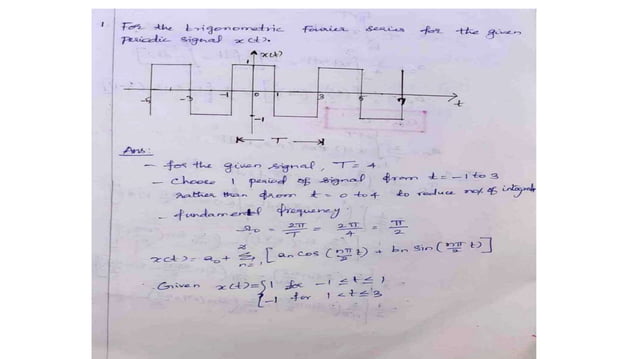 1 For the trigonometric Fourier series for the given
periodic signal x(t).
x(t)
1
-5 -3 -1 0 1 3 5 7 t
-1
T
Ans:
- for the given signal, T = 4
- Choose 1 period of signal from t = -1 to 3
rather than from t = 0 to 4 to reduce no. of integrals
- fundamental frequency
Ω0 = 2π/T = 2π/4 = π/2
x(t) = a0 + Σ n=1 ∞ [an cos (nπ/2 t) + bn sin (nπ/2 t)]
Given x(t) = { 1 for -1 ≤ t ≤ 1
{ -1 for 1 < t ≤ 3